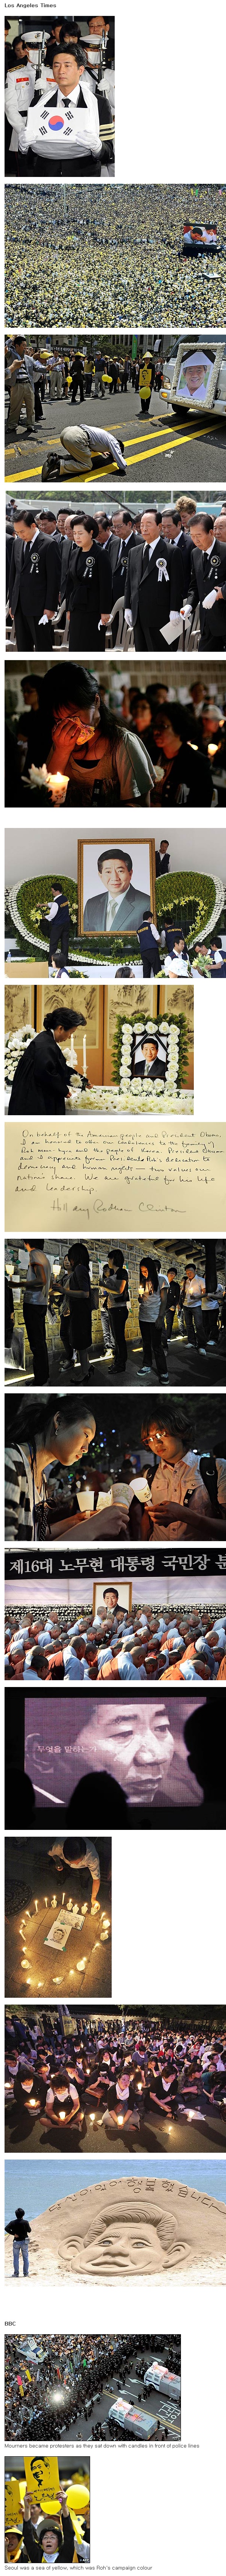 Los Angeles Times
On behalf of the American people and President Obama,
I am honored to offer our condolences to the family of
Roh Moo-hyun and the people of Korea. President Obama
and I appreciate former President Roh's dedication to
democracy and human rights — two values our
nations share. We are grateful for his life
and leadership.
Hillary Rodham Clinton
제16대 노무현 대통령 국민장 분
무엇을 말하는가
당신이 있어 행복했습니다
BBC
Mourners became protesters as they sat down with candles in front of police lines
Seoul was a sea of yellow, which was Roh's campaign colour